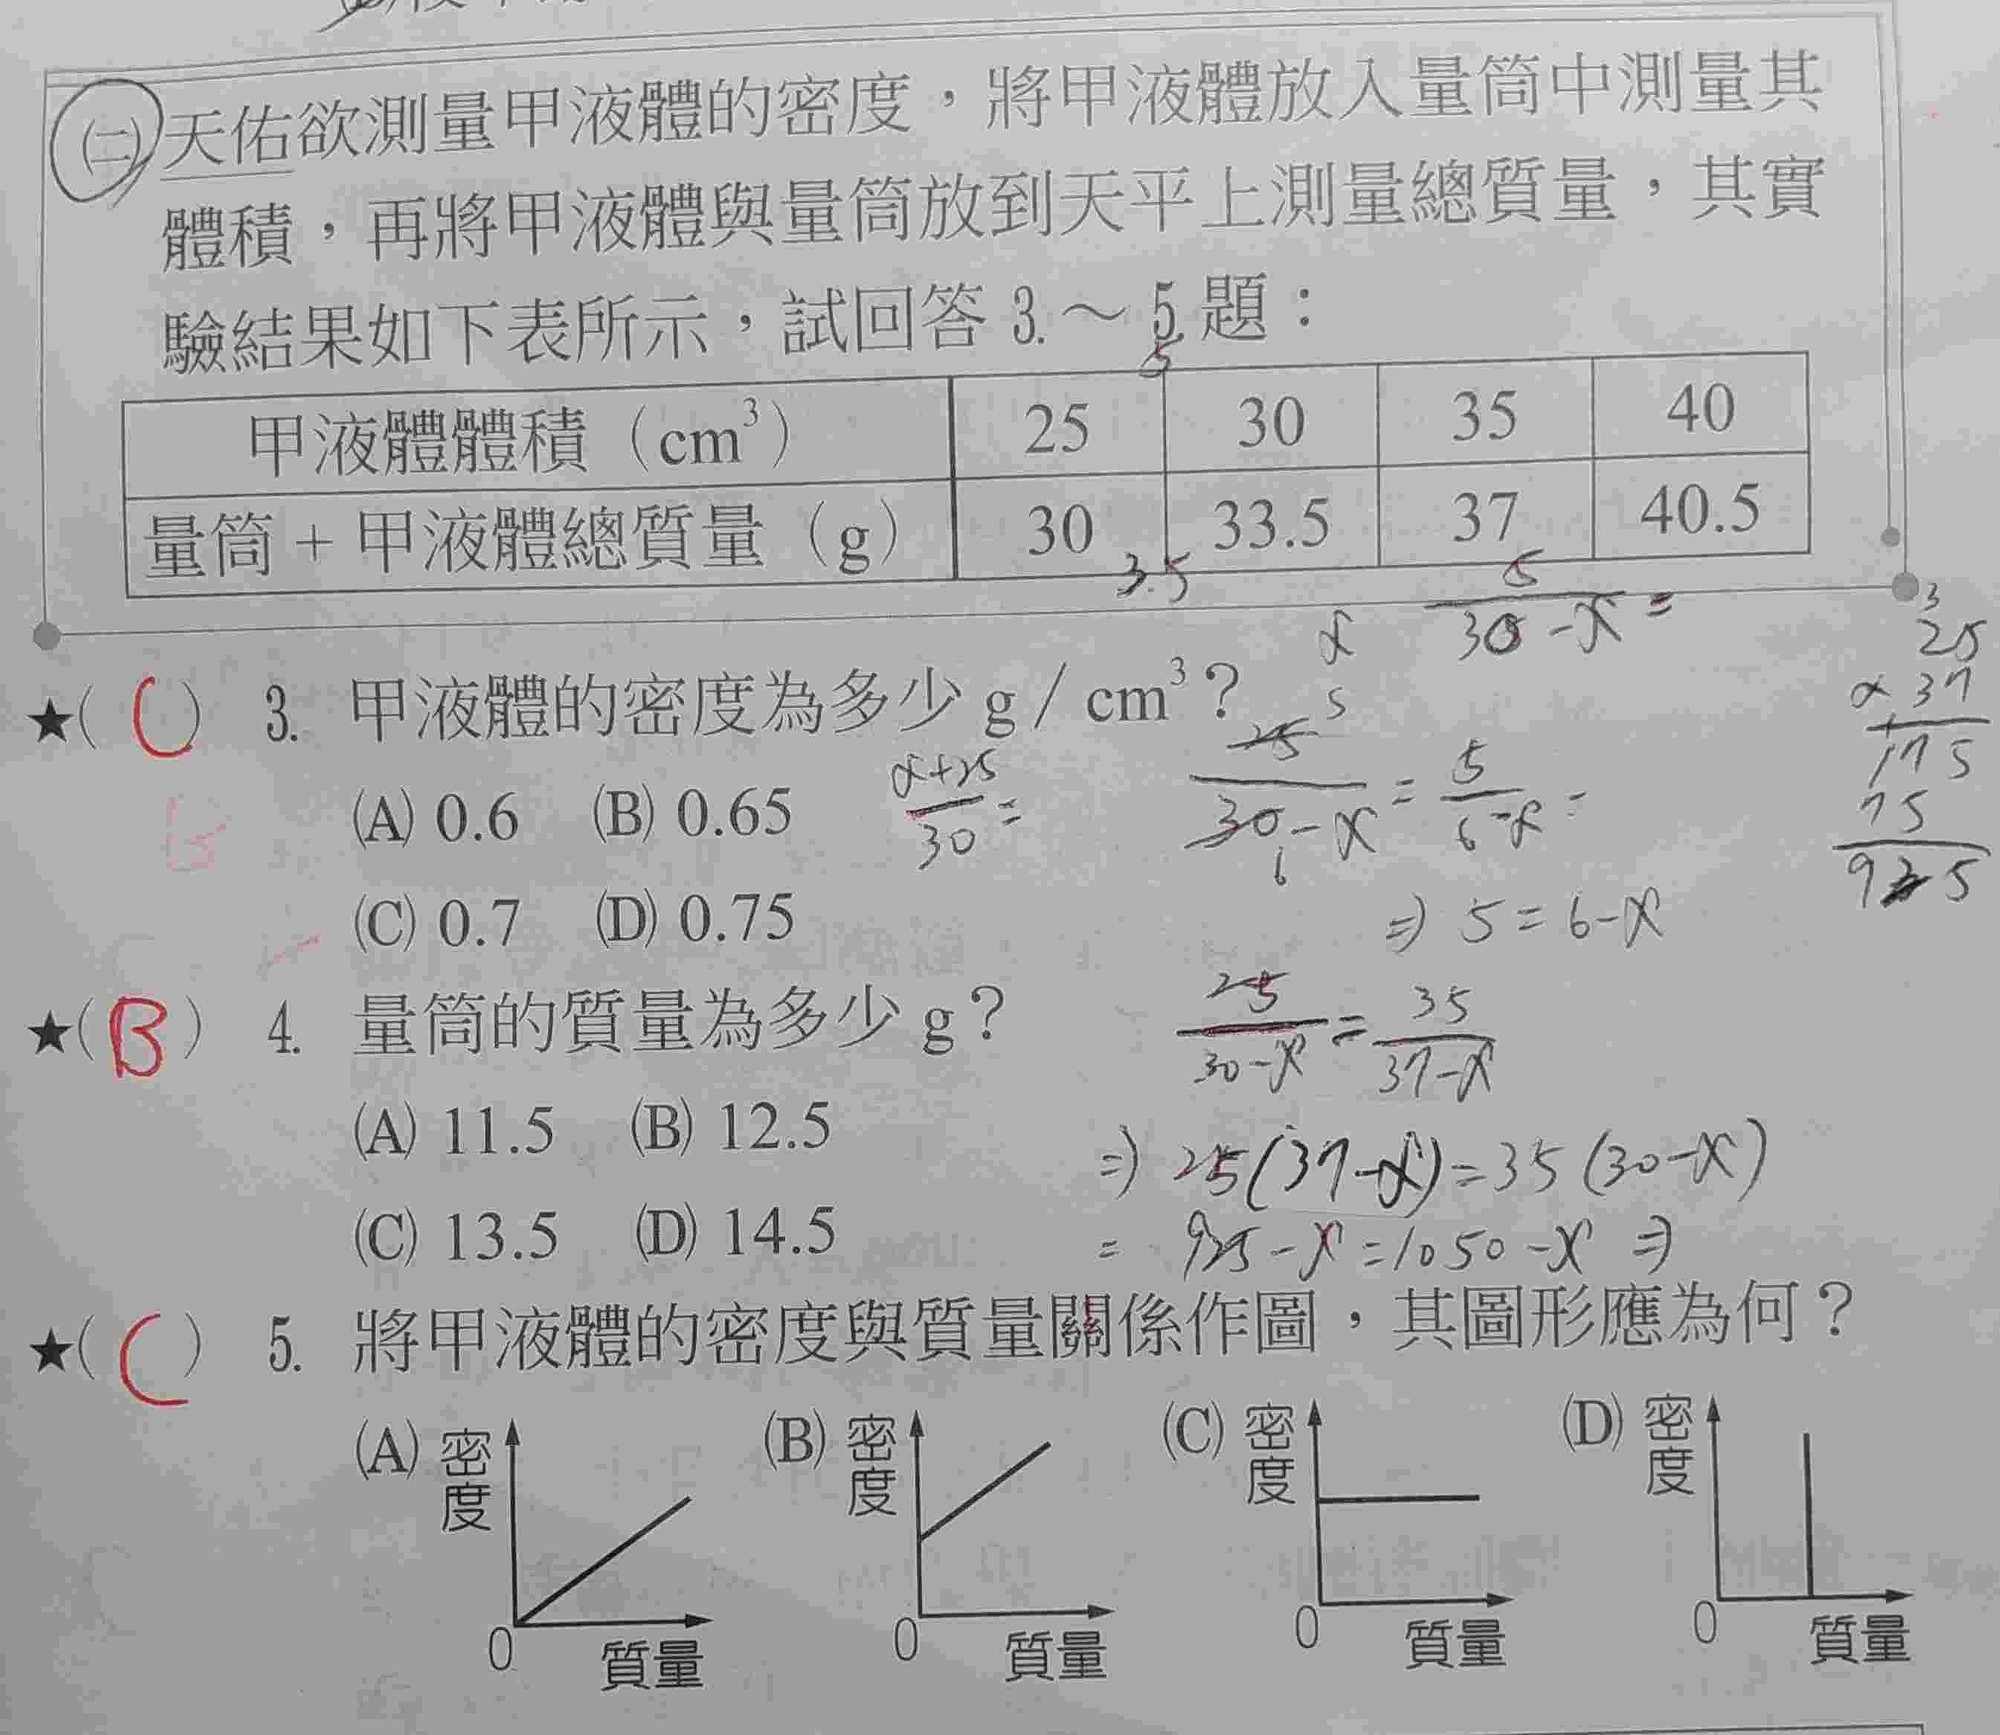 ㈡天佑欲測量甲液體的密度，將甲液體放入量筒中測量其
體積，再將甲液體與量筒放到天平上測量總質量，其實
驗結果如下表所示，試回答 3.～5.題：
5
甲液體體積（cm³） 25 30 35 40
量筒＋甲液體總質量（g） 30 33.5 37 40.5
3.5
x 5/(30-x) =
★( C ) 3. 甲液體的密度為多少 g／cm³？
(A) 0.6 (B) 0.65
(C) 0.7 (D) 0.75
(x+25)/30 =
25 5/(30-x) 6 = 5/(6-x) =
⇒ 5=6-x
3
25
x 37
175
75
925
★( B ) 4. 量筒的質量為多少 g？
(A) 11.5 (B) 12.5
(C) 13.5 (D) 14.5
25/(30-x) = 35/(37-x)
⇒ 25(37-x)=35(30-x)
= 925-x=1050-x ⇒
★( C ) 5. 將甲液體的密度與質量關係作圖，其圖形應為何？
(A) 密度 0 質量
(B) 密度 0 質量
(C) 密度 0 質量
(D) 密度 0 質量